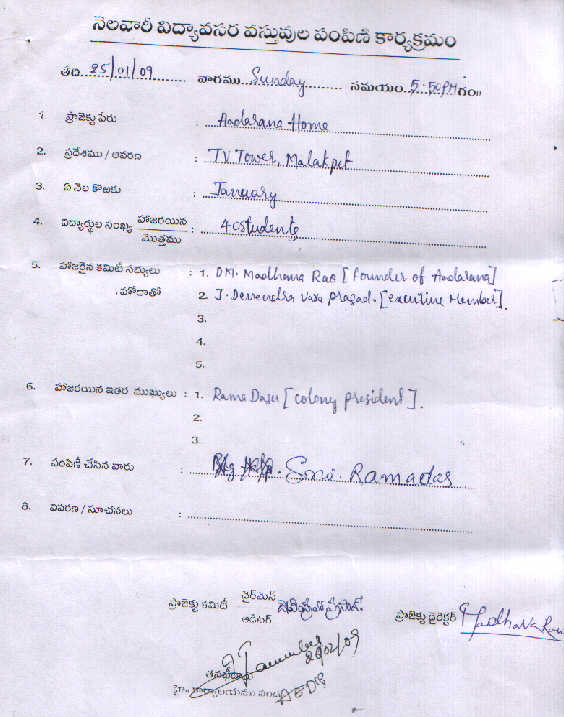 నెలవారీ విద్యావసర వస్తువుల పంపిణీ కార్యక్రమం
తేది. 25/01/09 వారము Sunday సమయం 5:50PM గం॥
1 ప్రాజెక్టు పేరు : Aadarana Home
2. ప్రదేశము / ఆవరణ : TV Tower, Malakpet
3. ఏ నెల కొఱకు : January
4. విద్యార్థుల సంఖ్య హాజరయిన / మొత్తము : 40 students
5. హాజరైన కమిటీ సభ్యులు : 1. DM. Madhava Rao [founder of Aadarana]
హోదాతో 2. J. Devendra Vara Prasad. [executive Member].
3.
4.
5.
6. హాజరయిన ఇతర ముఖ్యులు : 1. Rama Dasu [colony president].
2.
3.
7. పంపిణీ చేసిన వారు : Smi. Ramadas
8. వివరణ / సూచనలు :
ప్రాజెక్టు కమిటీ చైర్మెన్ ప్రాజెక్టు డైరెక్టర్ Madhava Rao
ఆడిటర్